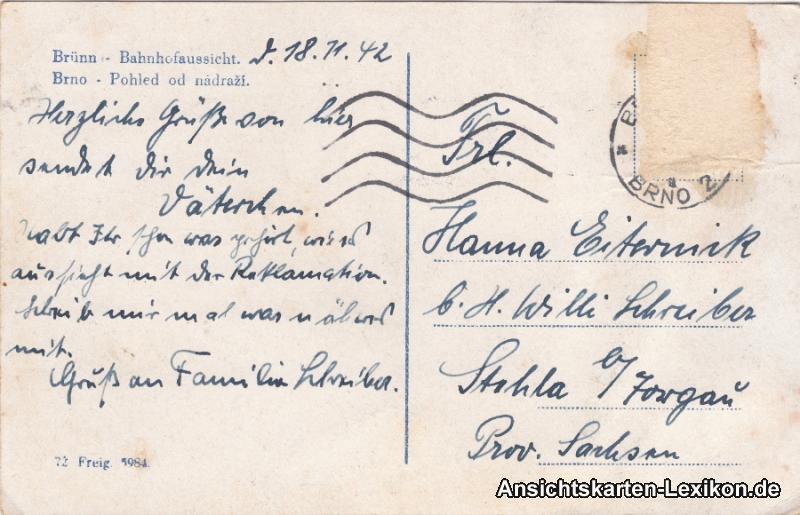 Brünn - Bahnhofaussicht. d. 18.11.42
Brno - Pohled od nádraží.
Herzliche Grüße von hier
sendet dir dein
Väterchen.
Habt Ihr schon was gehört, wie es
aussieht mit der Reklamation.
Schreib mir mal was näheres
mit.
Gruß an Familie Schreiber.
72 Freig. 5984.
Frl.
Hanna Eiternick
b. H. Willi Schreiber
Stehla b/ Torgau
Prov. Sachsen
BRNO 2
Ansichtskarten-Lexikon.de